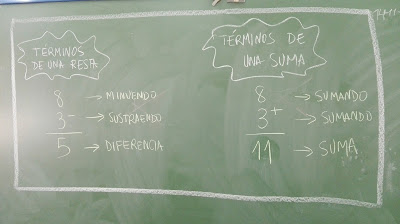 TÉRMINOS
DE UNA RESTA
8 → MINUENDO
3 - → SUSTRAENDO
5 → DIFERENCIA
TÉRMINOS DE
UNA SUMA
8 → SUMANDO
3 + → SUMANDO
11 → SUMA